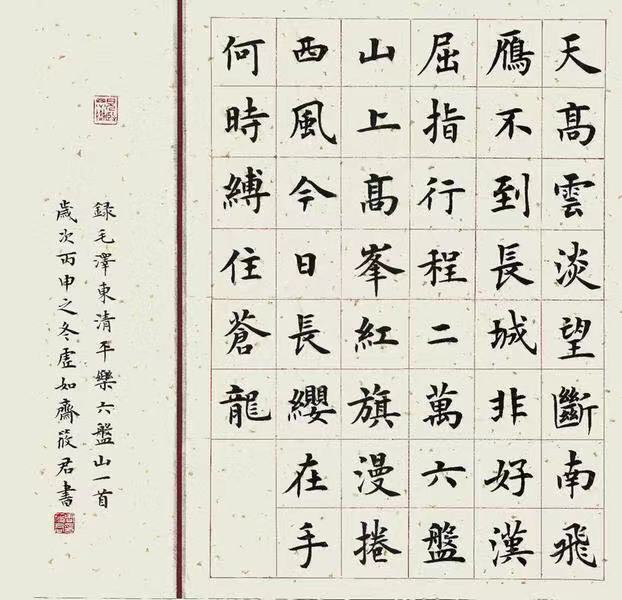 天髙雲淡望斷南飛
鴈不到長城非好漢
屈指行程二萬六盤
山上髙峯紅旗漫捲
西風今日長纓在手
何時縛住蒼龍
録毛澤東清平樂六盤山一首
歲次丙申之冬虛如齋筱君書